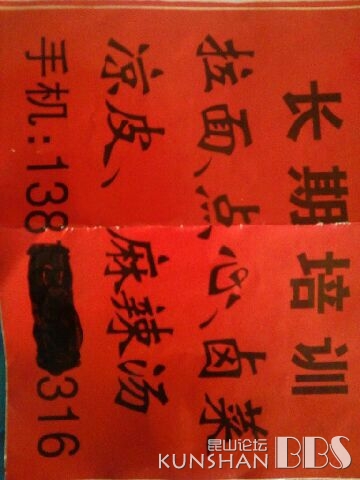 长期培训
拉面、点心、卤菜
凉皮、麻辣汤
手机:138 316
昆山论坛
KUNSHAN BBS